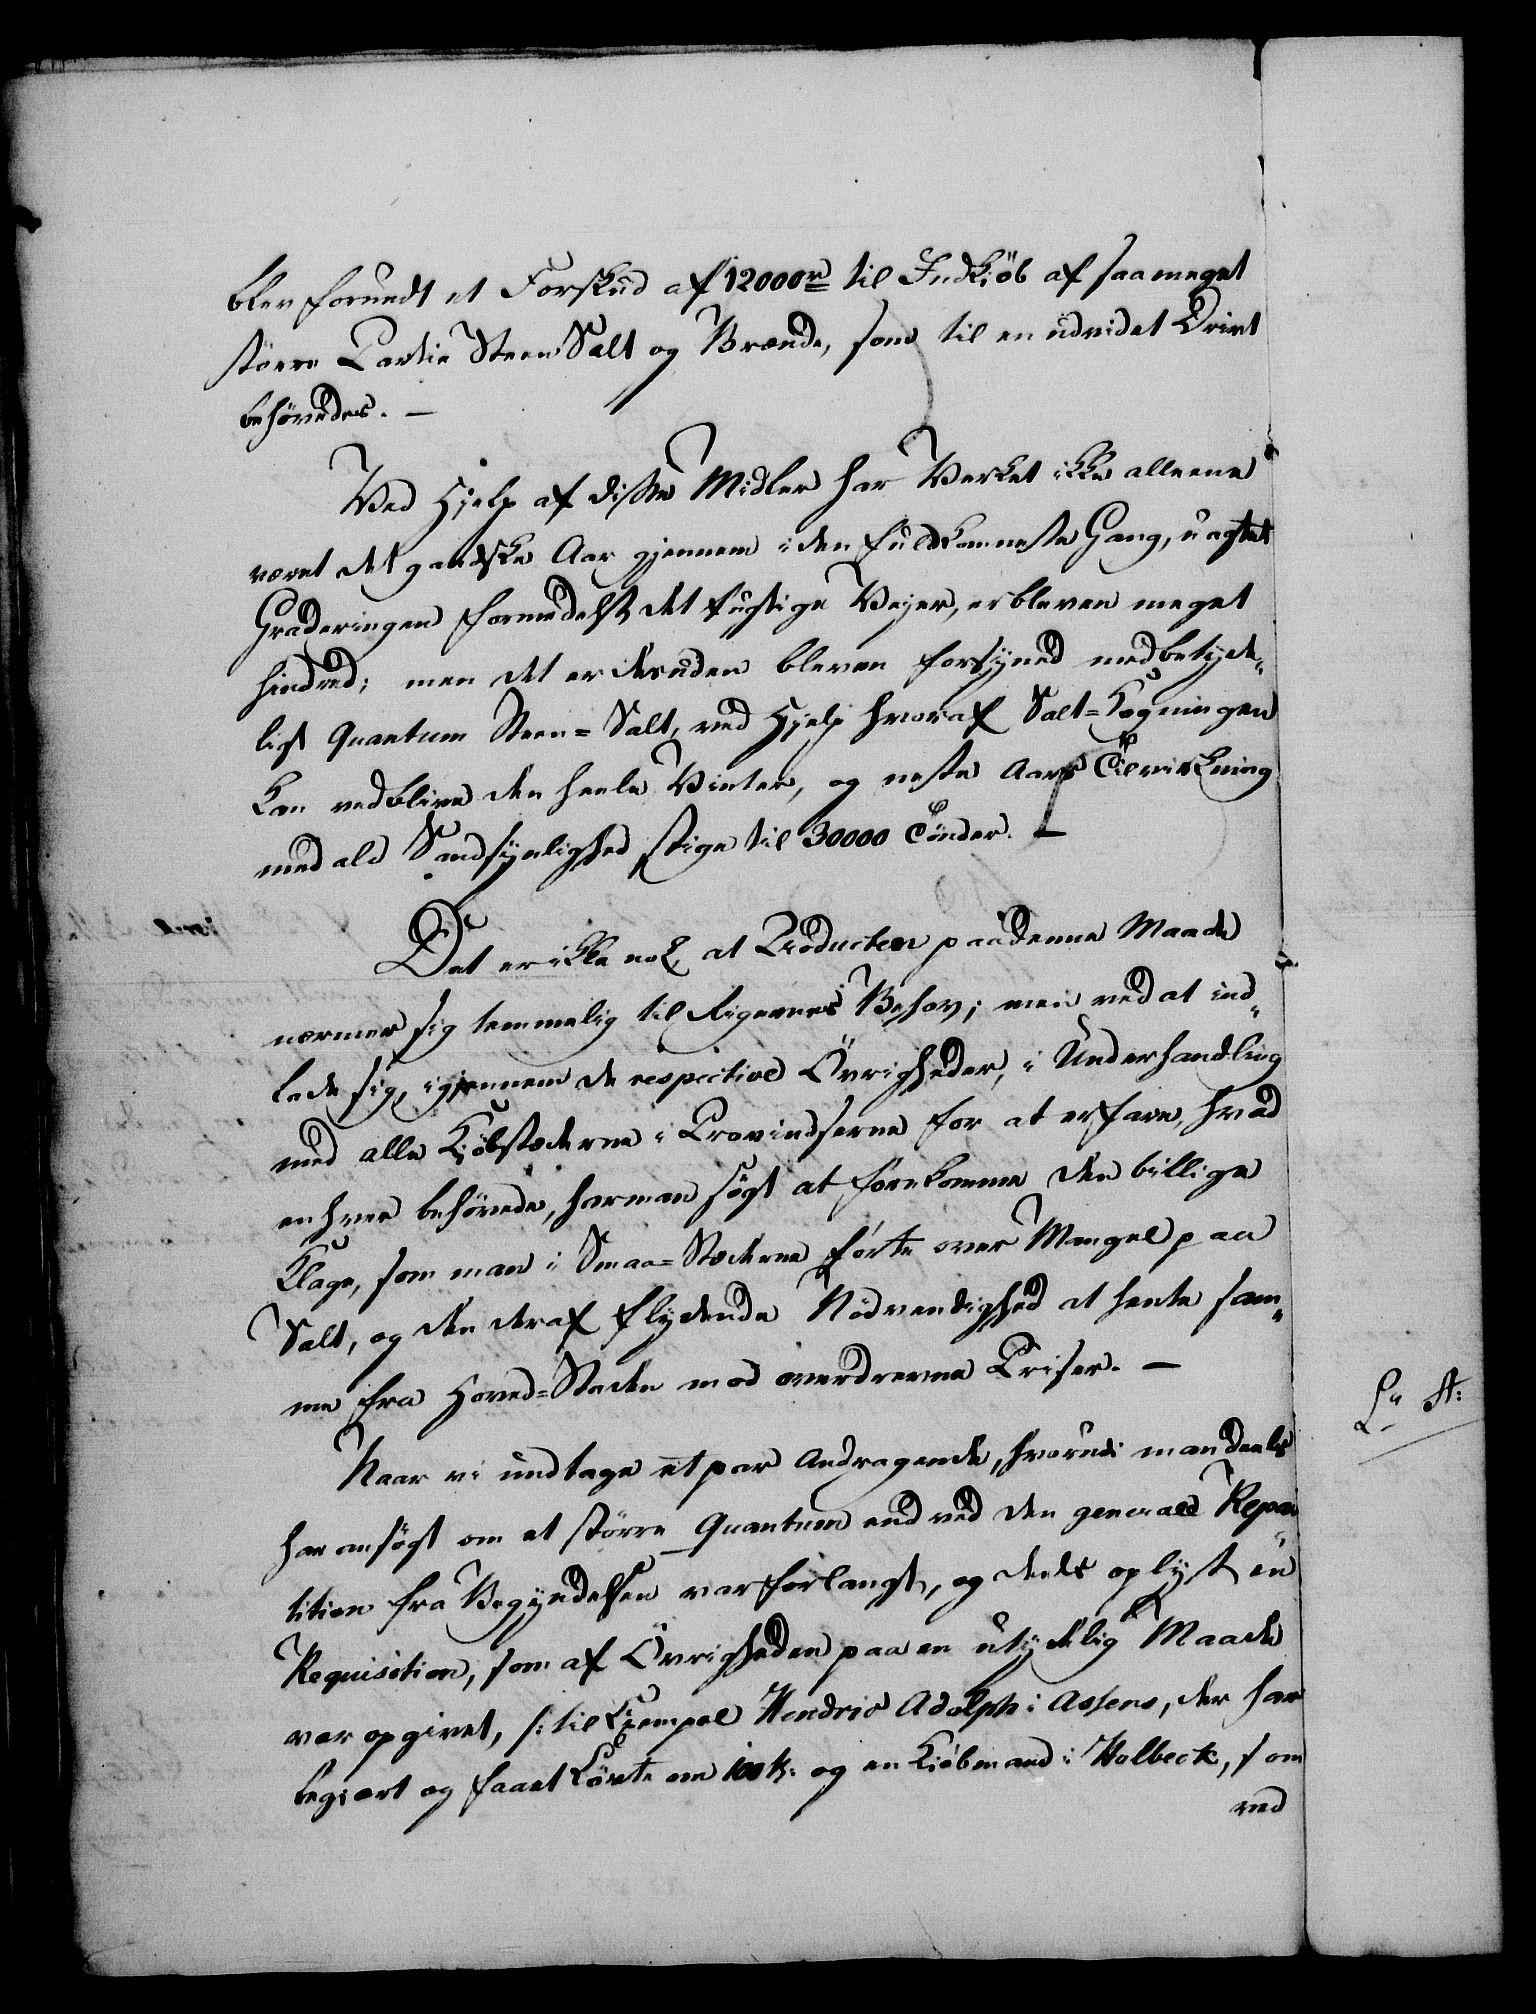 blev forundt et Forskud af 12000rd til Indkiöb af saa meget
större Partie Steen Salt og Brænde, som til en udvidet Drivt
behövedes. —
Ved Hjelp af disse Midler har Verket ikke alleene
været det gandske Aar gjennem i den fuldkomneste Gang, uagtet
Graderingen formedelst det fugtige Vejer, er bleven meget
hindred; men det er desuden bleven forsÿned med betÿde„
ligt Quantum Steen=Salt, ved Hjelp hvoraf Salt=Kogningen
kan vedblive den heele Vinter, og neste Aars Tilvirkning
med ald Sandsÿnlighed stige til 30000 Tönder. —
Det er ikke nok, at Producten paa denne Maade
nærmer sig temmelig til Rigernes Behov; men ved at ind„
lade sig, igjennem de respective Övrigheder, i Underhandling
med alle Kjöbstæderne i Provindserne for at erfare, hvad
enhver behövede, har man sögt at forekomme den billige
Klage, som man i Smaa=Stæderne förte over Mangel paa
Salt, og den deraf flÿdende Nödvendighed at hente sam„
me fra Hoved=Staden mod overdrevne Priser. —
Naar vi undtage et par Andragende, hvorudi man deels
har ansögt om et större Quantum end ved den general Repar„
tition fra Begÿndelsen var forlangt, og deels oplÿst en
Requisition, som af Övrigheden paa en utÿdelig Maade
var opgivet, s: til Exempel Hendric Adolph i Assens, der har
begiert og faaet Törte om 100 t. og en Kiöbmand i Holbeck, som
ved
La A: